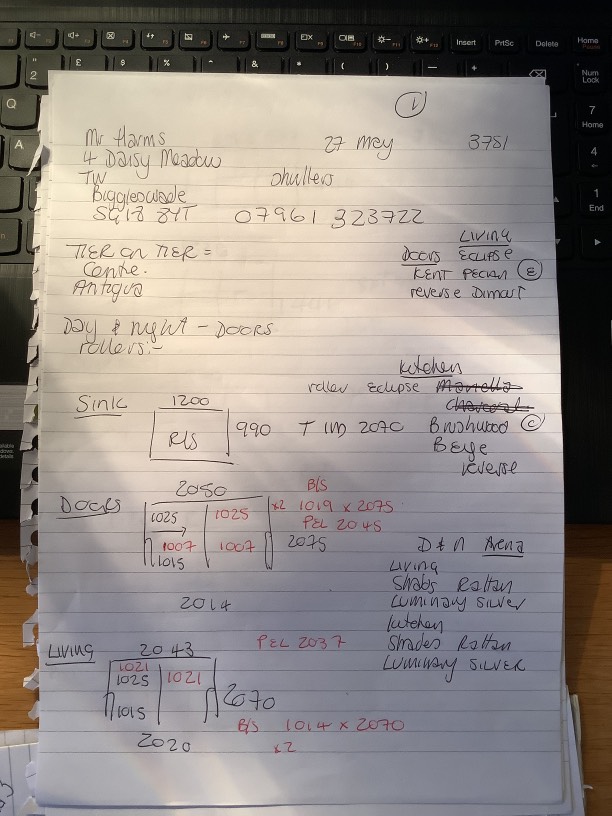 1
Mr Harms 27 May 3781
4 Daisy Meadow
TW Shutters
Biggleswade
SG18 8YT 07961 323722
Living
TIER on TIER = Doors Eclipse
Centre. KENT PECIAN E
Antigua reverse Dimart
Day & Night - DOORS
rollers:-
Kitchen
roller Eclipse
Sink 1200
R/S 990 T IM 2070 Brushwood C
Beige
reverse
Doors 2050 B/S
1025 1025 x2 1019 x 2075
PEL 2045
1007 1007 2075
1015
D & N Arena
Living
Shabs Rattan
Luminary Silver
2014
Kitchen
Shades Rattan
Luminary Silver
Living 2043 PEL 2037
1021
1025 1021
2070
1015
B/S 1014 x 2070
2020 x2